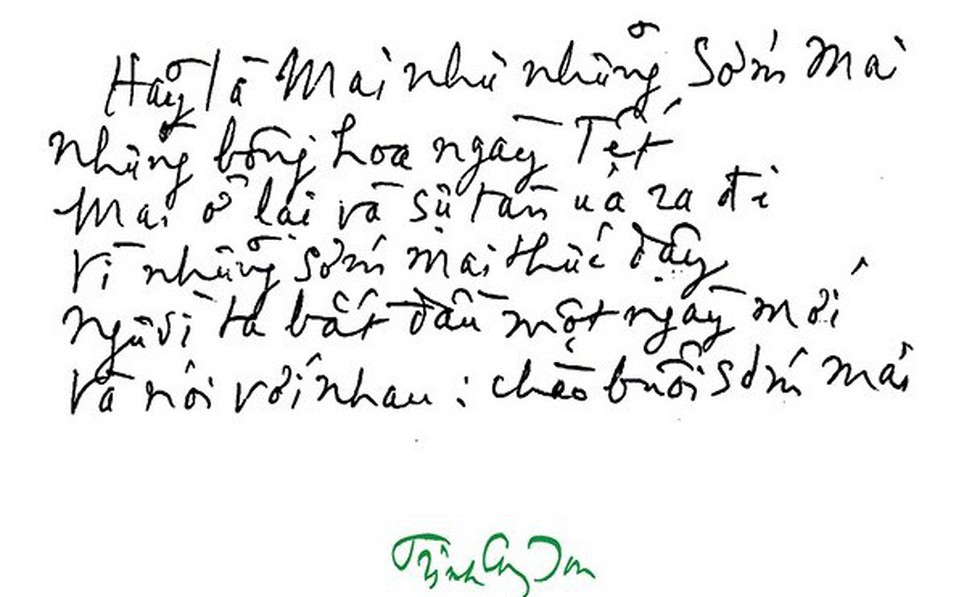 Hãy là Mai như những sớm mai
những bông hoa ngày Tết
Mai ở lại và sự tàn úa ra đi
Vì những sớm mai thức dậy
người ta bắt đầu một ngày mới
Và nói với nhau : chào buổi sớm mai
Trịnh Công Sơn